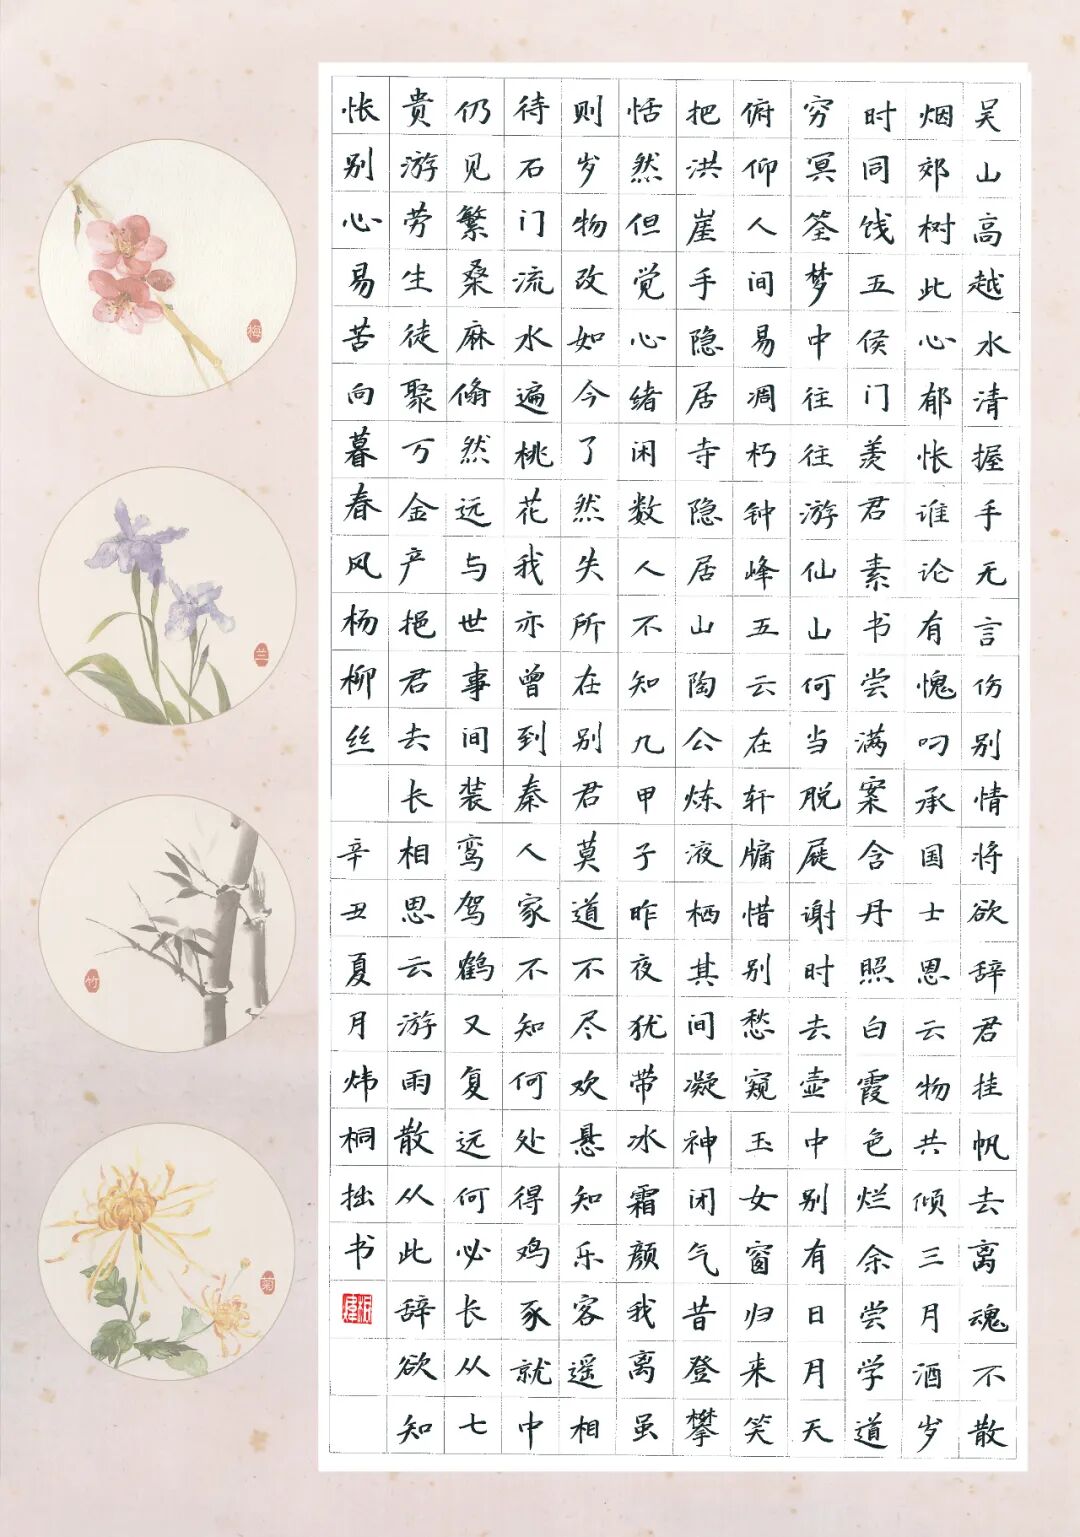 吴山高越水清握手无言伤别情将欲辞君挂帆去离魂不散
烟郊树此心郁怅谁论有愧叨承国士恩云物共倾三月酒岁
时同饯五侯门羡君素书尝满案含丹照白霞色烂余尝学道
穷冥筌梦中往往游仙山何当脱屣谢时去壶中别有日月天
俯仰人间易凋朽钟峰五云在轩牖惜别愁窥玉女窗归来笑
把洪崖手隐居寺隐居山陶公炼液栖其间凝神闭气昔登攀
恬然但觉心绪闲数人不知几甲子昨夜犹带冰霜颜我离虽
则岁物改如今了然失所在别君莫道不尽欢悬知乐客遥相
待石门流水遍桃花我亦曾到秦人家不知何处得鸡豕就中
仍见繁桑麻翛然远与世事间装鸾驾鹤又复远何必长从七
贵游劳生徒聚万金产挹君去长相思云游雨散从此辞欲知
怅别心易苦向暮春风杨柳丝 辛丑夏月炜桐拙书
梅
兰
竹
菊